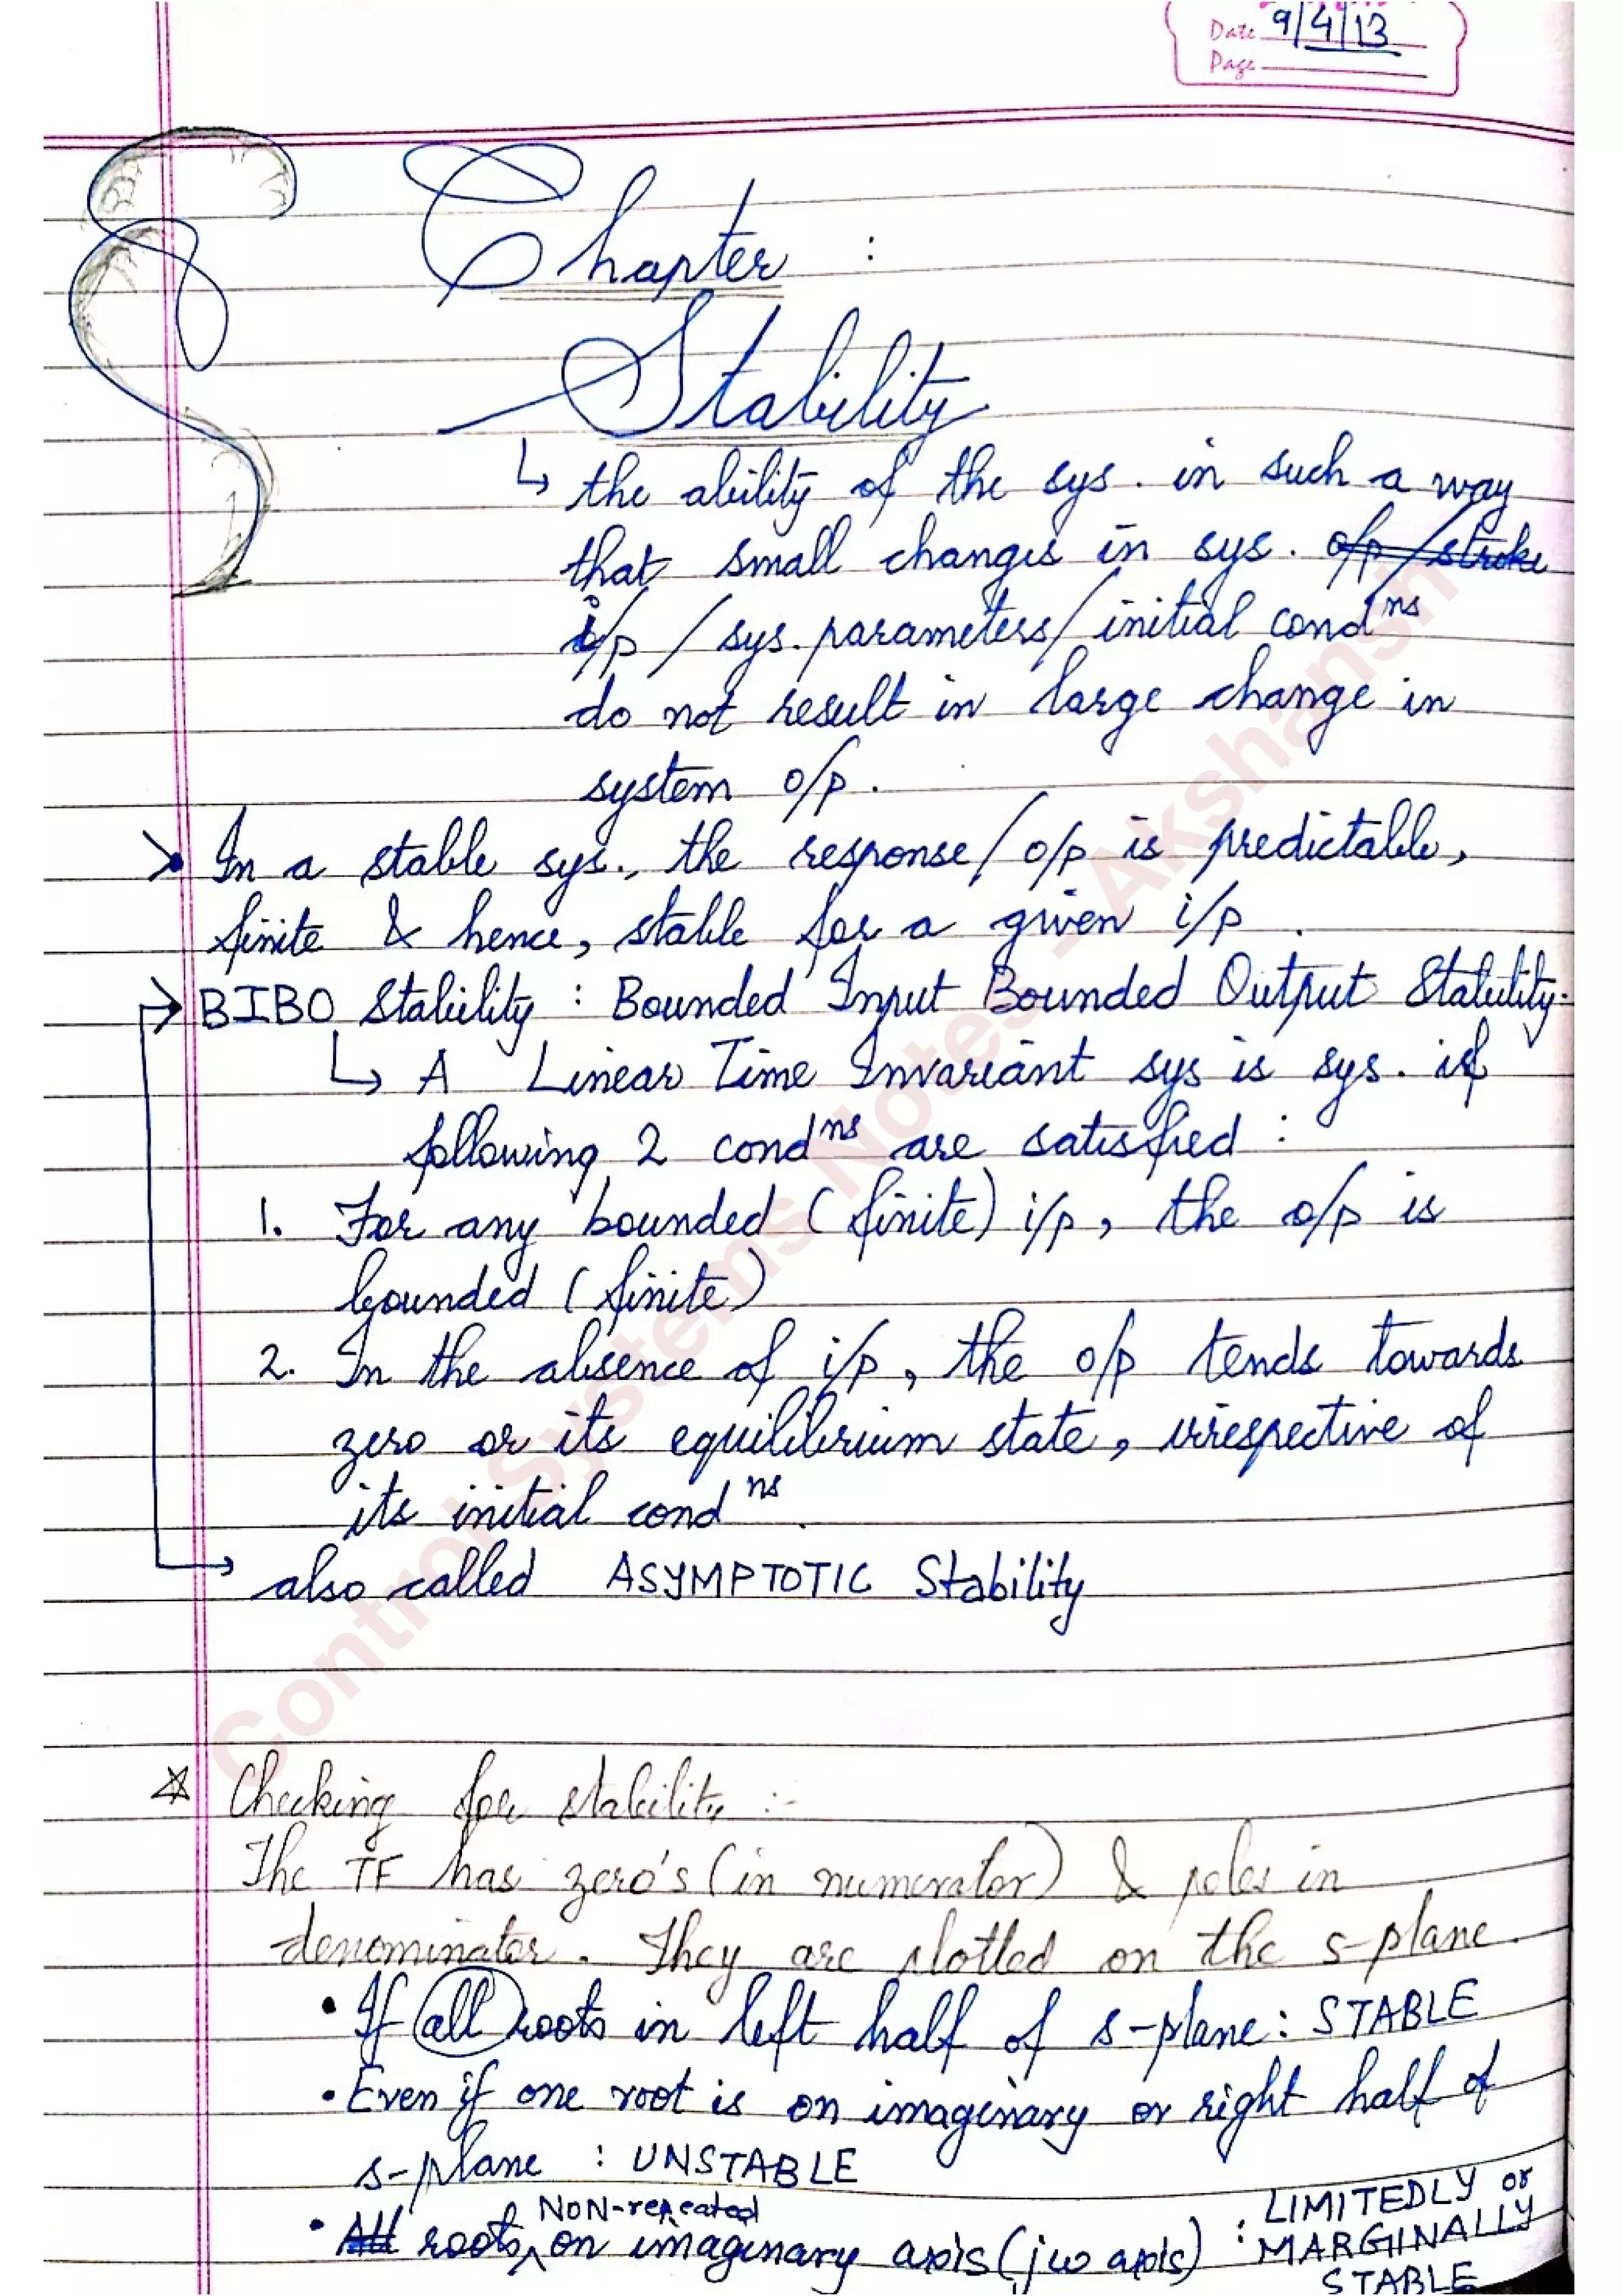 Date 9/4/13
Page
Chapter :
Stability
↳ the ability of the sys. in such a way
that small changes in sys. o/p / stroke
i/p / sys. parameters/initial condns
do not result in large change in
system o/p.
In a stable sys., the response/o/p is predictable,
finite & hence, stable for a given i/p.
→ BIBO Stability : Bounded Input Bounded Output Stability.
↳ A Linear Time Invariant sys is sys. if
following 2 condns are satisfied :
1. For any bounded (finite) i/p, the o/p is
bounded (finite)
2. In the absence of i/p, the o/p tends towards
zero or its equilibrium state, irrespective of
its initial condns.
→ also called ASYMPTOTIC Stability
☆ Checking for stability :-
The TF has zero's (in numerator) & poles in
denominator. They are plotted on the s-plane.
• If all roots in left half of s-plane: STABLE
• Even if one root is on imaginary or right half of
s-plane : UNSTABLE
• All roots NON-repeated on imaginary axis (jw axis) : LIMITEDLY or
MARGINALLY
STABLE
Control Systems Notes - Akshansh